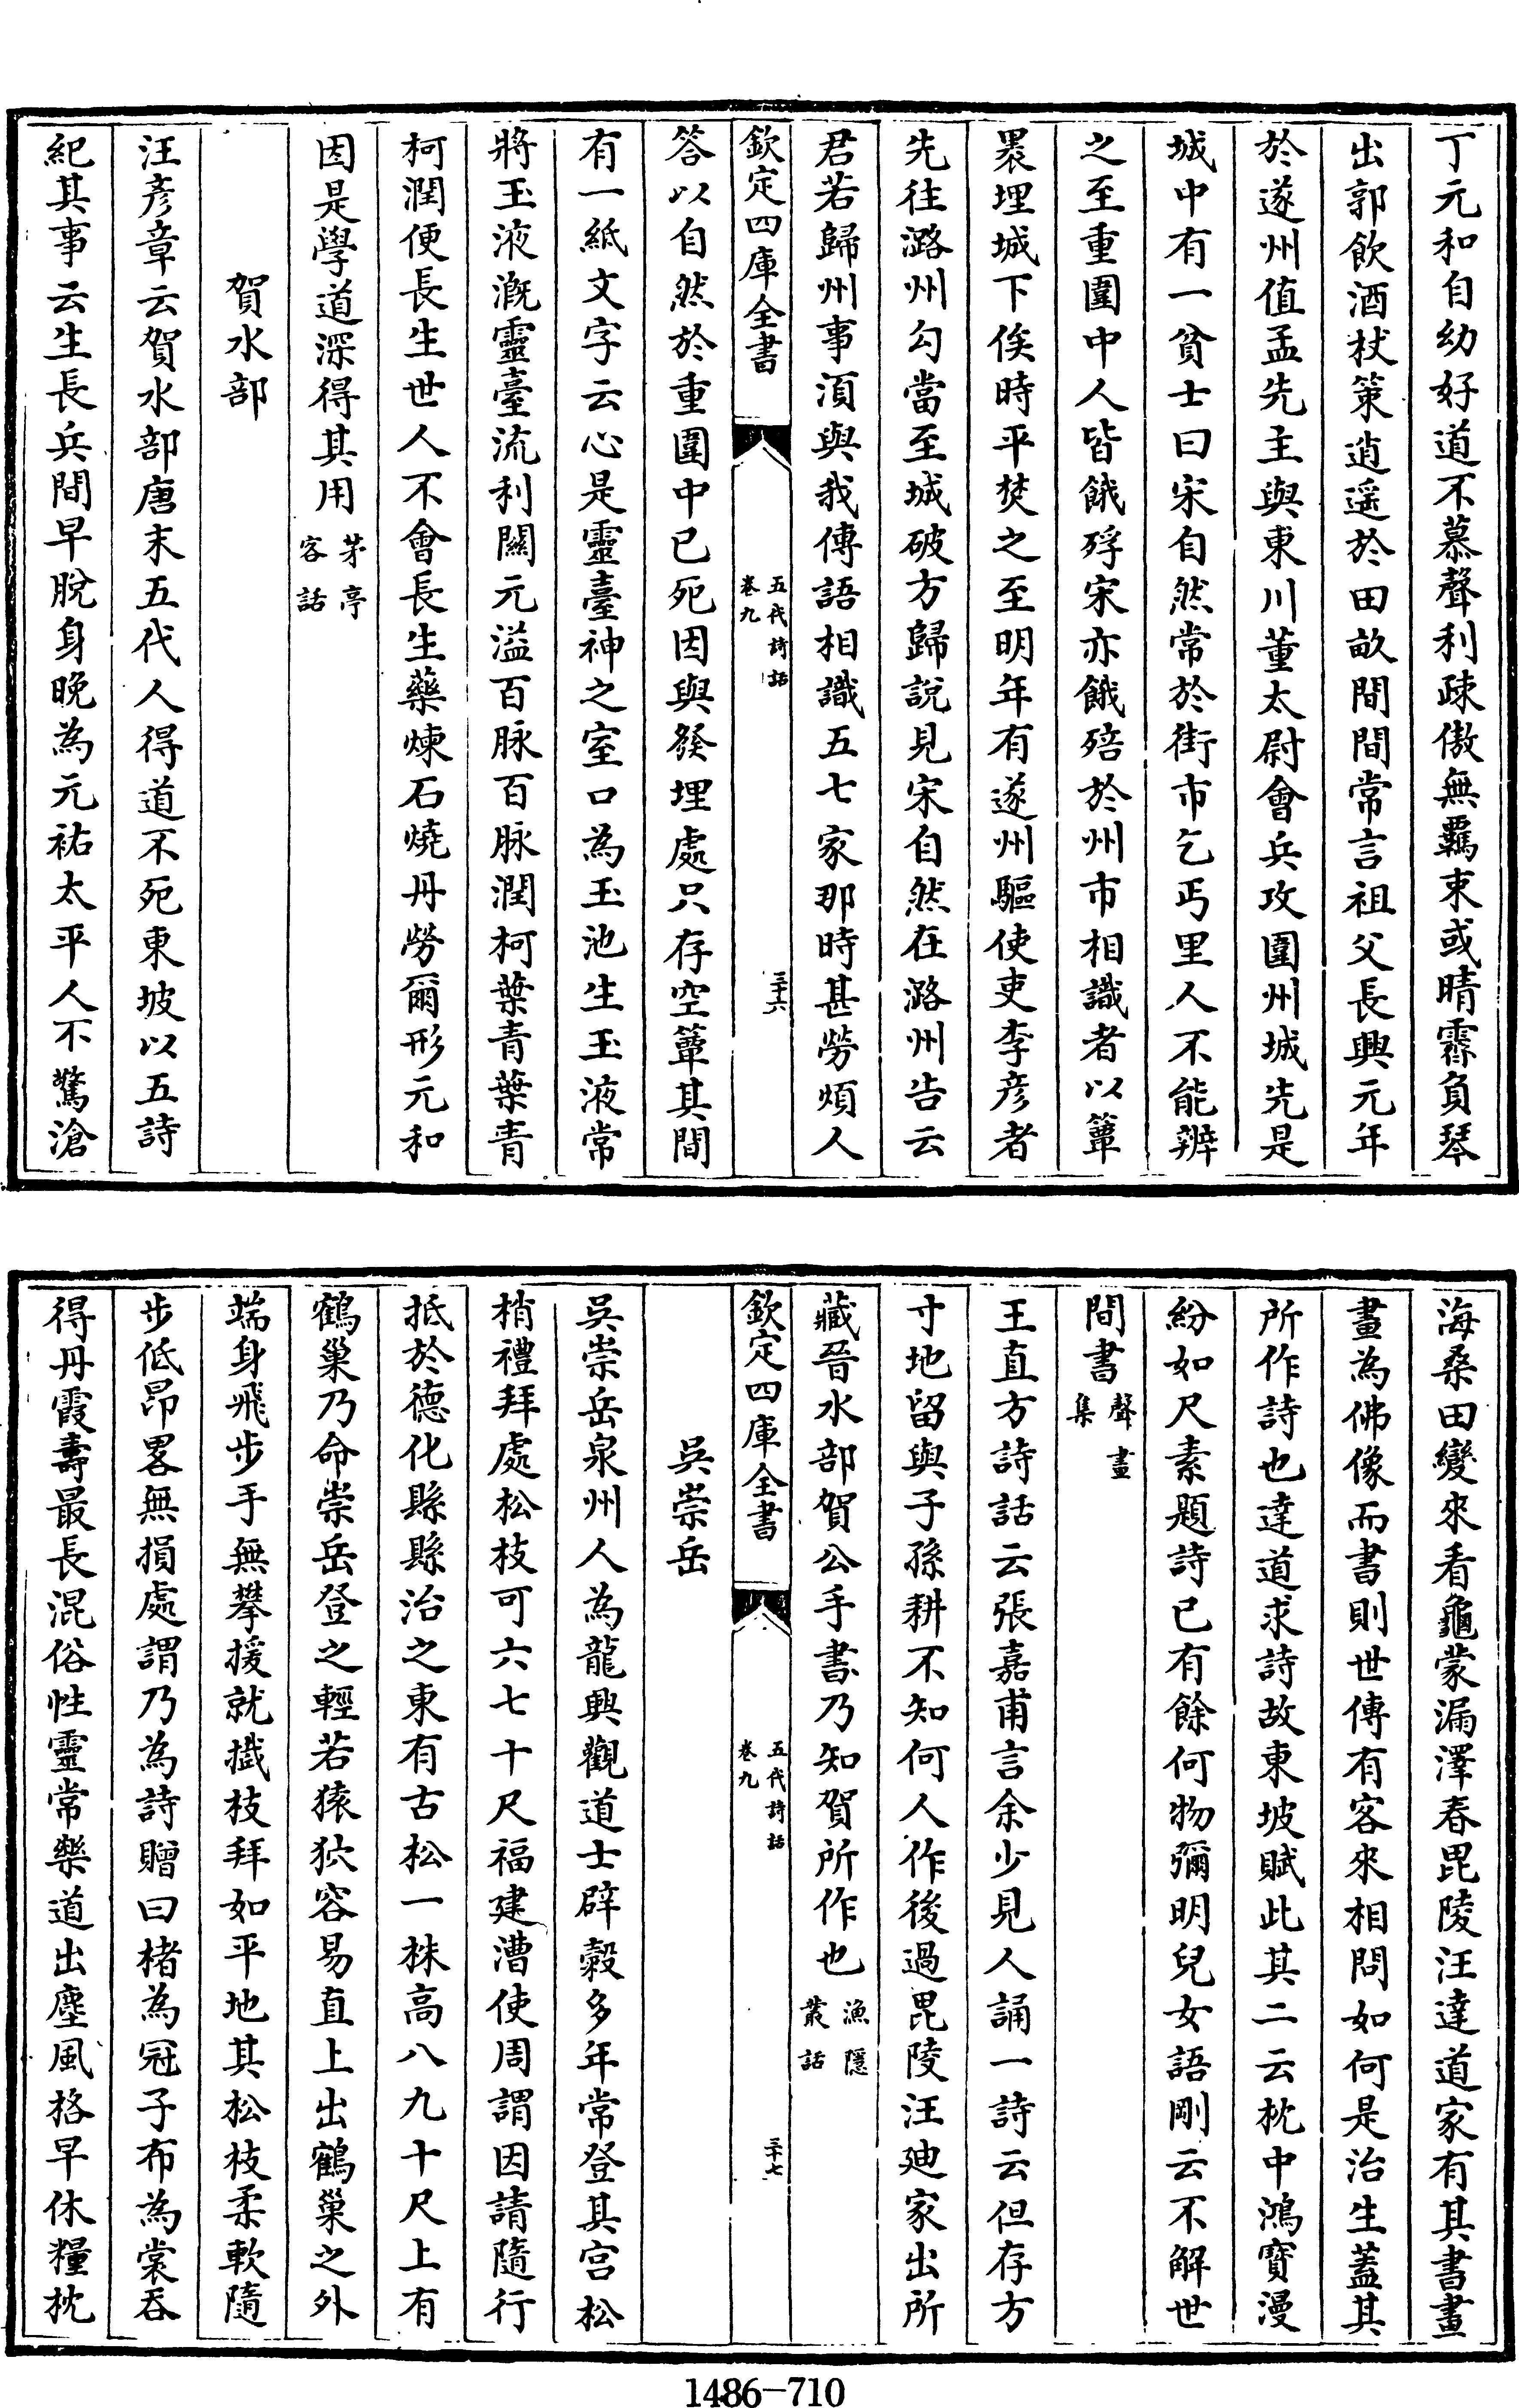 丁元和自幼好道不慕聲利疎傲無羈束或晴霽負琴
出郭飲酒杖策逍遥於田畝間間常言祖父長興元年
於遂州值孟先主與東川董太尉會兵攻圍州城先是
城中有一貧士曰宋自然常於街市乞丐里人不能辨
之至重圍中人皆餓殍宋亦餓踣於州市相識者以簟
裹埋城下俟時平焚之至明年有遂州驅使吏李彦者
先往潞州勾當至城破方歸說見宋自然在潞州告云
君若歸州事湏與我傳語相識五七家那時甚勞煩人
欽定四庫全書
五代詩話
卷九
三十六
答以自然於重圍中已死因與發埋處只存空簟其間
有一紙文字云心是靈臺神之室口為玉池生玉液常
將玉液溉靈臺流利關元溢百脉百脉潤柯葉青葉青
柯潤便長生世人不會長生藥煉石燒丹勞爾形元和
因是學道深得其用
茅亭
客話
賀水部
汪彦章云賀水部唐末五代人得道不死東坡以五詩
紀其事云生長兵間早脫身晚為元祐太平人不驚滄
海桑田變來看龜蒙漏澤春毘陵汪達道家有其書畫
畫為佛像而書則世傳有客來相問如何是治生蓋其
所作詩也達道求詩故東坡賦此其二云枕中鴻寶漫
紛如尺素題詩已有餘何物彌明兒女語剛云不解世
間書
聲畫
集
王直方詩話云張嘉甫言余少見人誦一詩云但存方
寸地留與子孫耕不知何人作後過毘陵汪廸家出所
藏晉水部賀公手書乃知賀所作也
漁隱
叢話
欽定四庫全書
五代詩話
卷九
三十七
吳崇岳
吳崇岳泉州人為龍興觀道士辟榖多年常登其宫松
梢禮拜處松枝可六七十尺福建漕使周謂因請隨行
抵於德化縣縣治之東有古松一株高八九十尺上有
鶴巢乃命崇岳登之輕若猿狖容易直上出鶴巢之外
端身飛步手無攀援就擑枝拜如平地其松枝柔軟隨
步低昂畧無損處謂乃為詩贈曰楮為冠子布為裳吞
得丹霞壽最長混俗性靈常樂道出塵風格早休糧枕
1486-710